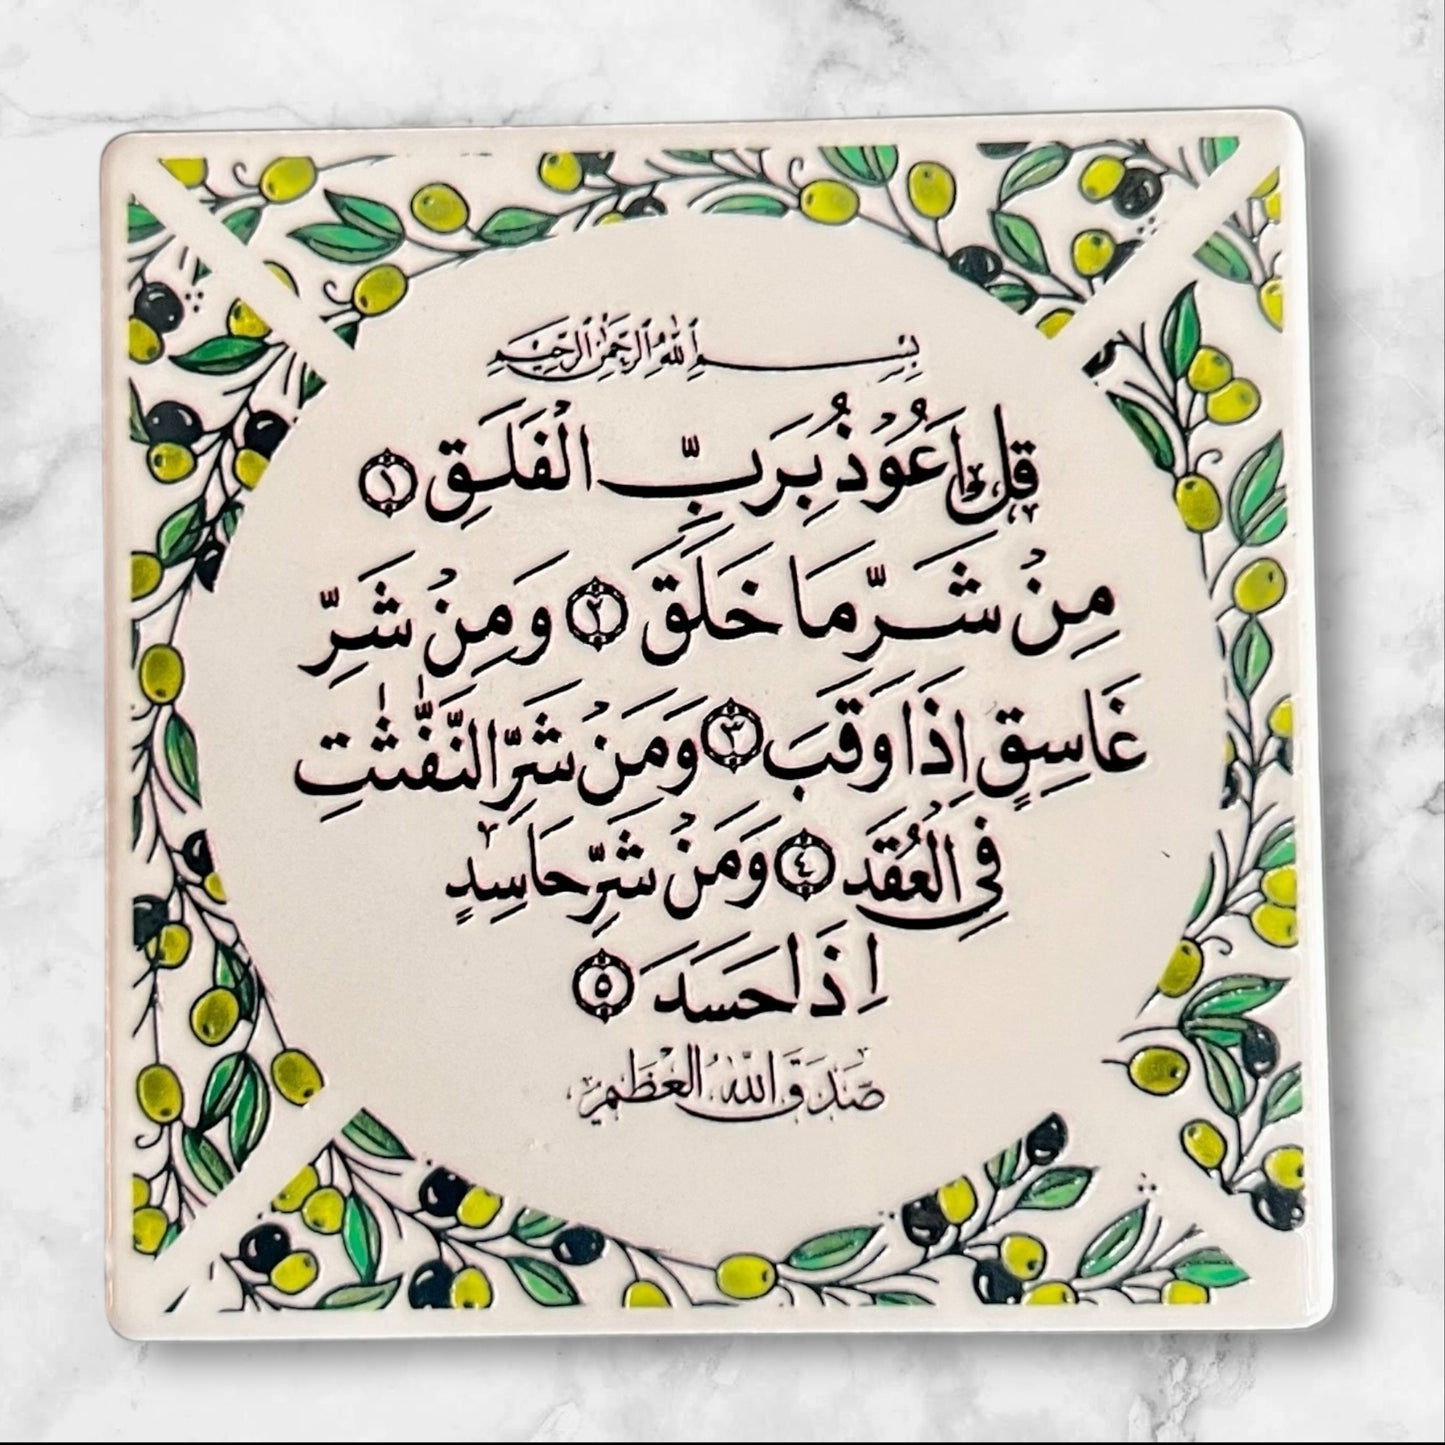 بِسْمِ اللّٰهِ الرَّحْمٰنِ الرَّحِيْمِ
قُلْ اَعُوْذُ بِرَبِّ الْفَلَقِ ١
مِنْ شَرِّ مَا خَلَقَ ٢ وَمِنْ شَرِّ
غَاسِقٍ اِذَا وَقَبَ ٣ وَمِنْ شَرِّ النَّفّٰثٰتِ
فِي الْعُقَدِ ٤ وَمِنْ شَرِّ حَاسِدٍ
اِذَا حَسَدَ ٥
صَدَقَ اللّٰهُ الْعَظِيْمُ